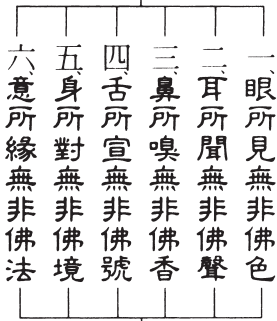 一、眼所見無非佛色
二、耳所聞無非佛聲
三、鼻所嗅無非佛香
四、舌所宣無非佛號
五、身所對無非佛境
六、意所緣無非佛法